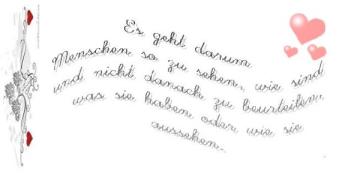 Es geht darum
Menschen so zu sehen, wie sind
und nicht danach zu beurteilen,
was sie haben oder wie sie
aussehen..